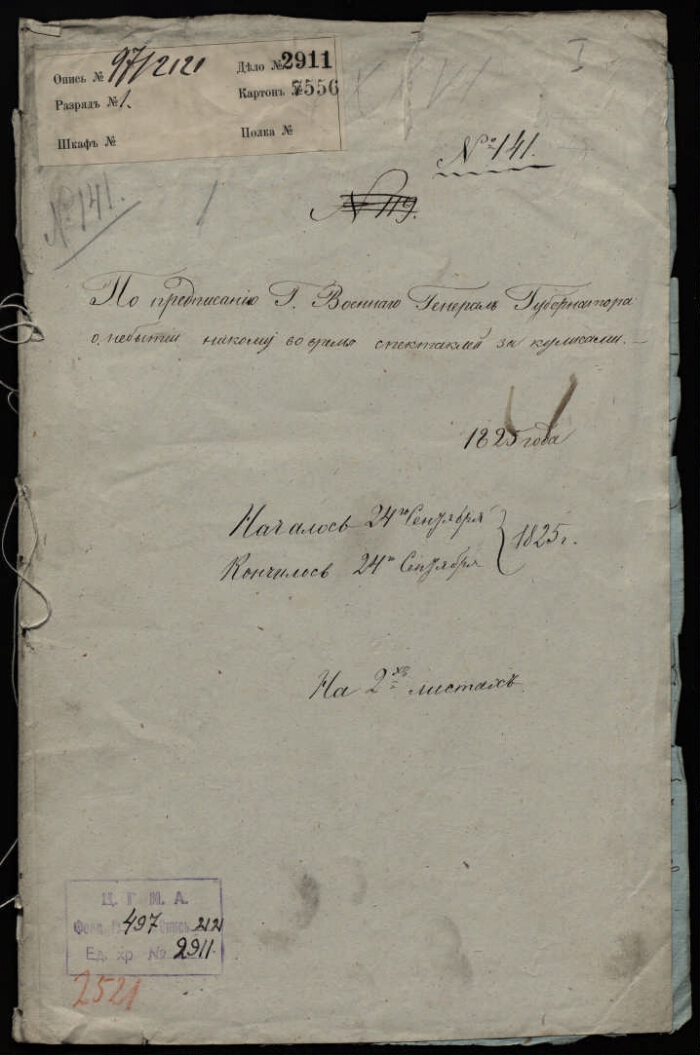 Опись № 97/2121
Дѣло № 2911
Разрядъ № 1.
Картонъ № 7556
Шкафъ №
Полка №
I
№ 141.
№ 141.
№ 119.
По предписанію Г. Военнаго Генералъ Губернатора
о небытіи никому во время спектаклей за кулисами. —
1825 года
Началось 24го Сентября
Кончилось 24го Сентября
1825 г.
На 2хъ листахъ
Ц. Г. И. А.
Фонд 497 Опись 2121
Ед. хр. № 2911
2521